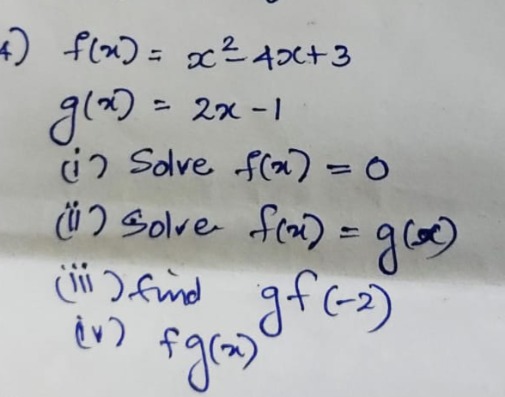 4) f(x) = x² - 4x + 3
g(x) = 2x - 1
(i) Solve f(x) = 0
(ii) Solve f(x) = g(x)
(iii) find gf(-2)
(iv) fg(x)